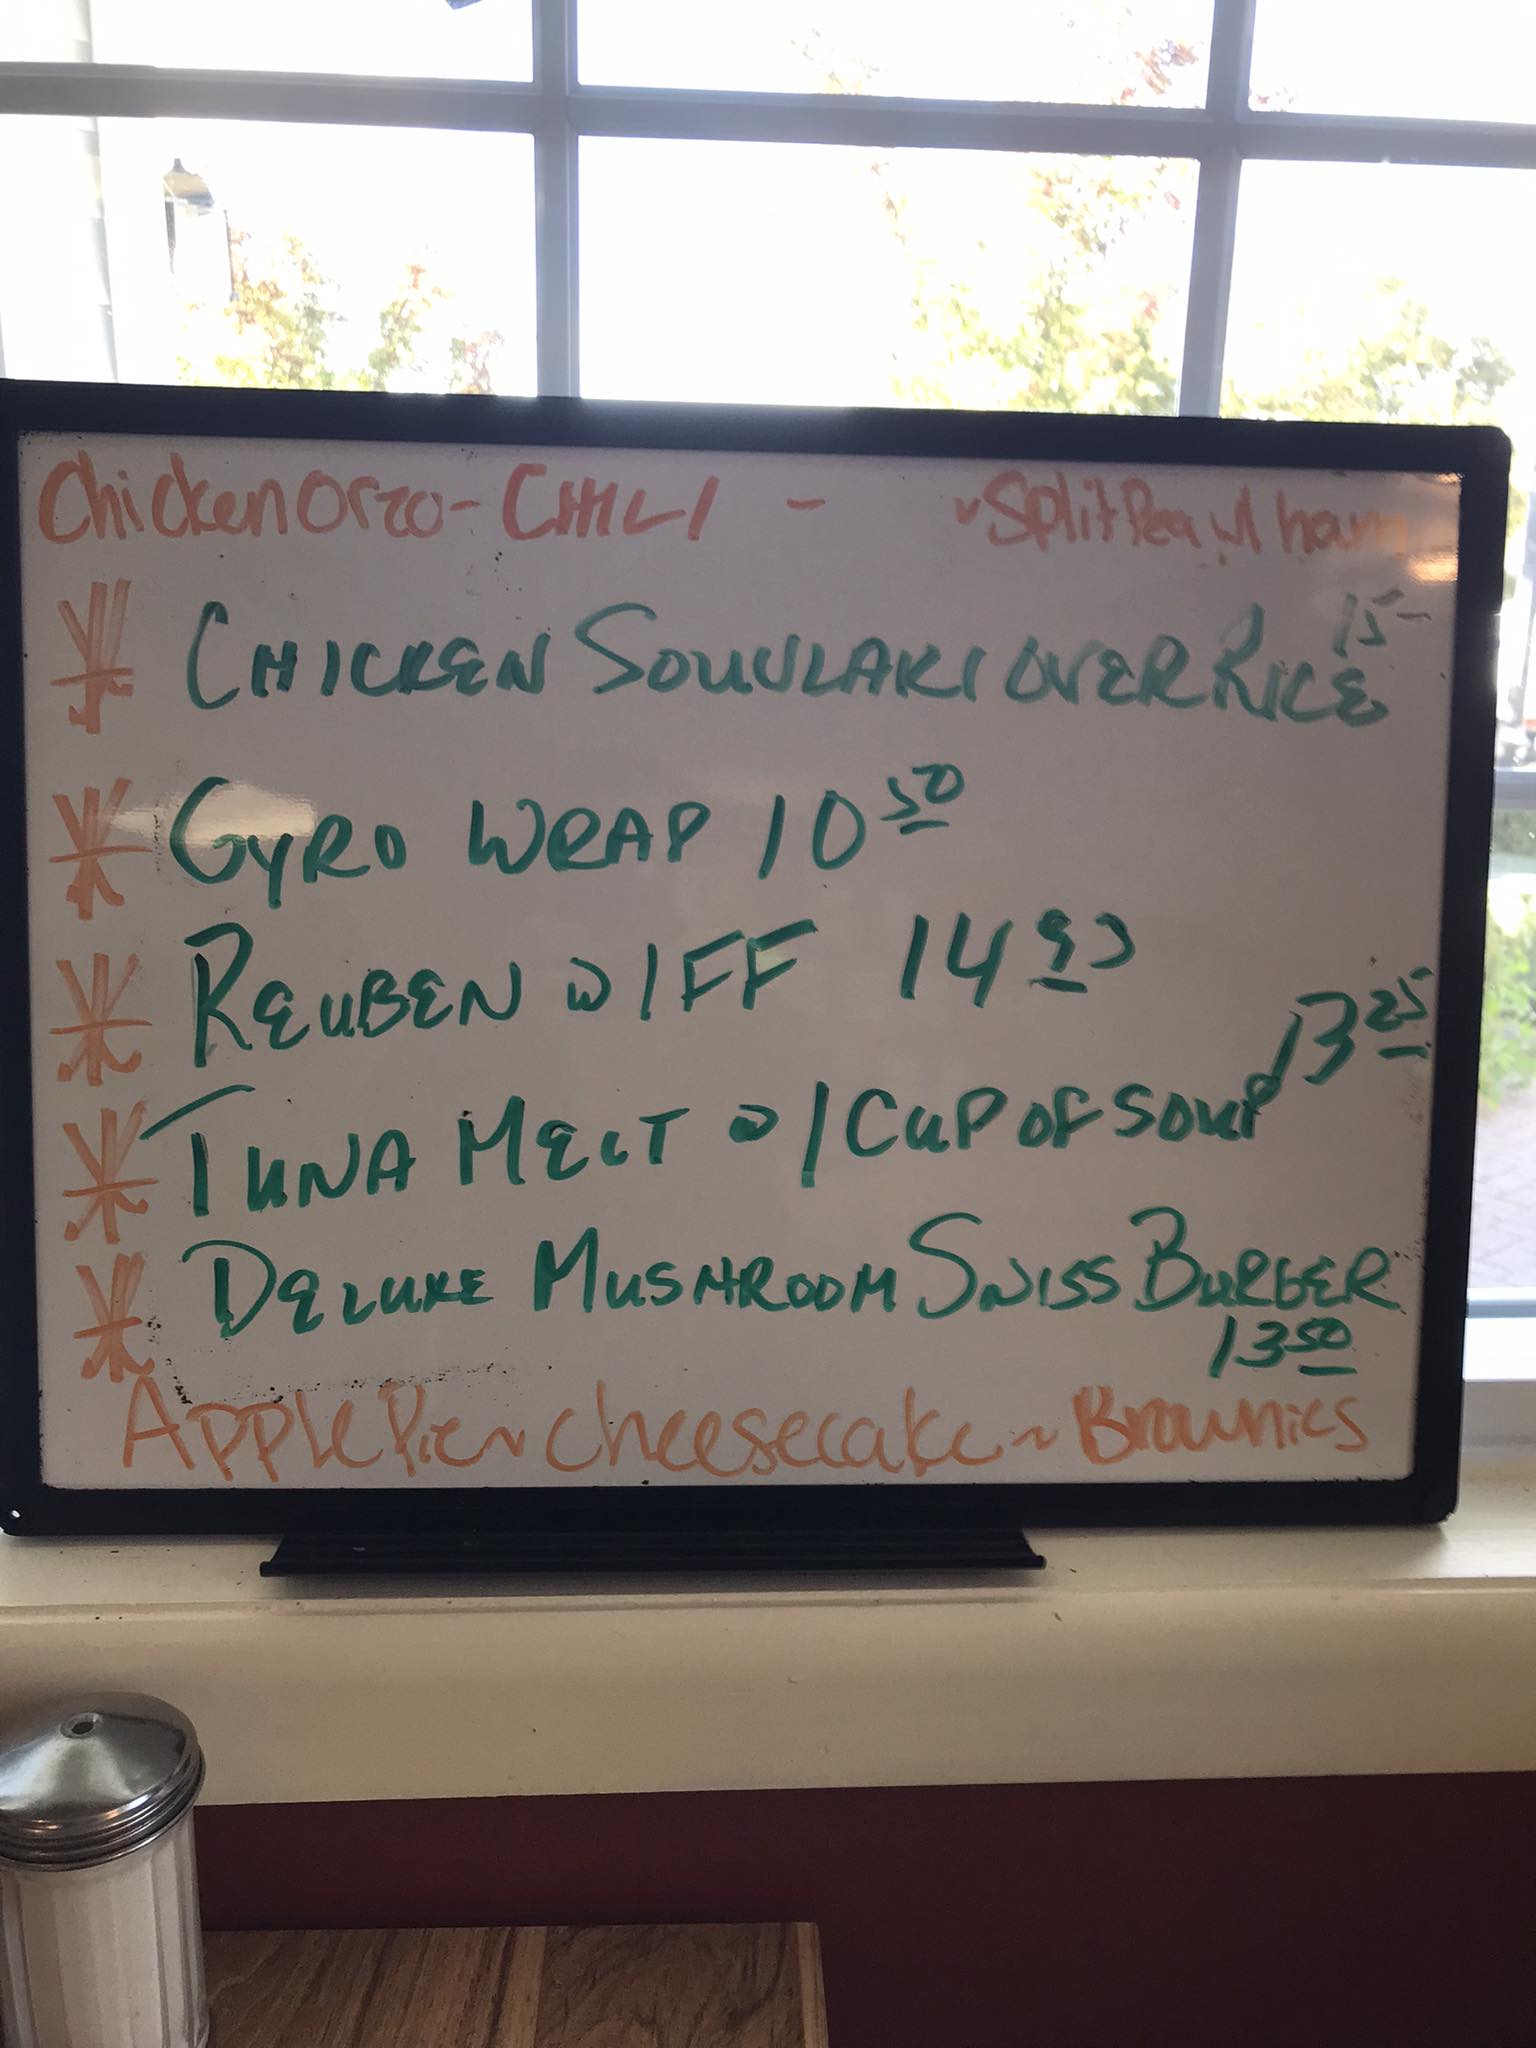 Chicken Orzo - CHILI - ~ Split Pea w/ ham
CHICKEN SOUVLAKI OVER RICE 15-
GYRO WRAP 10 50
REUBEN W/FF 14
TUNA MELT W/CUP OF SOUP 13 25
DELUXE MUSHROOM SWISS BURGER
13 50
Apple Pie ~ cheesecake ~ Brownies